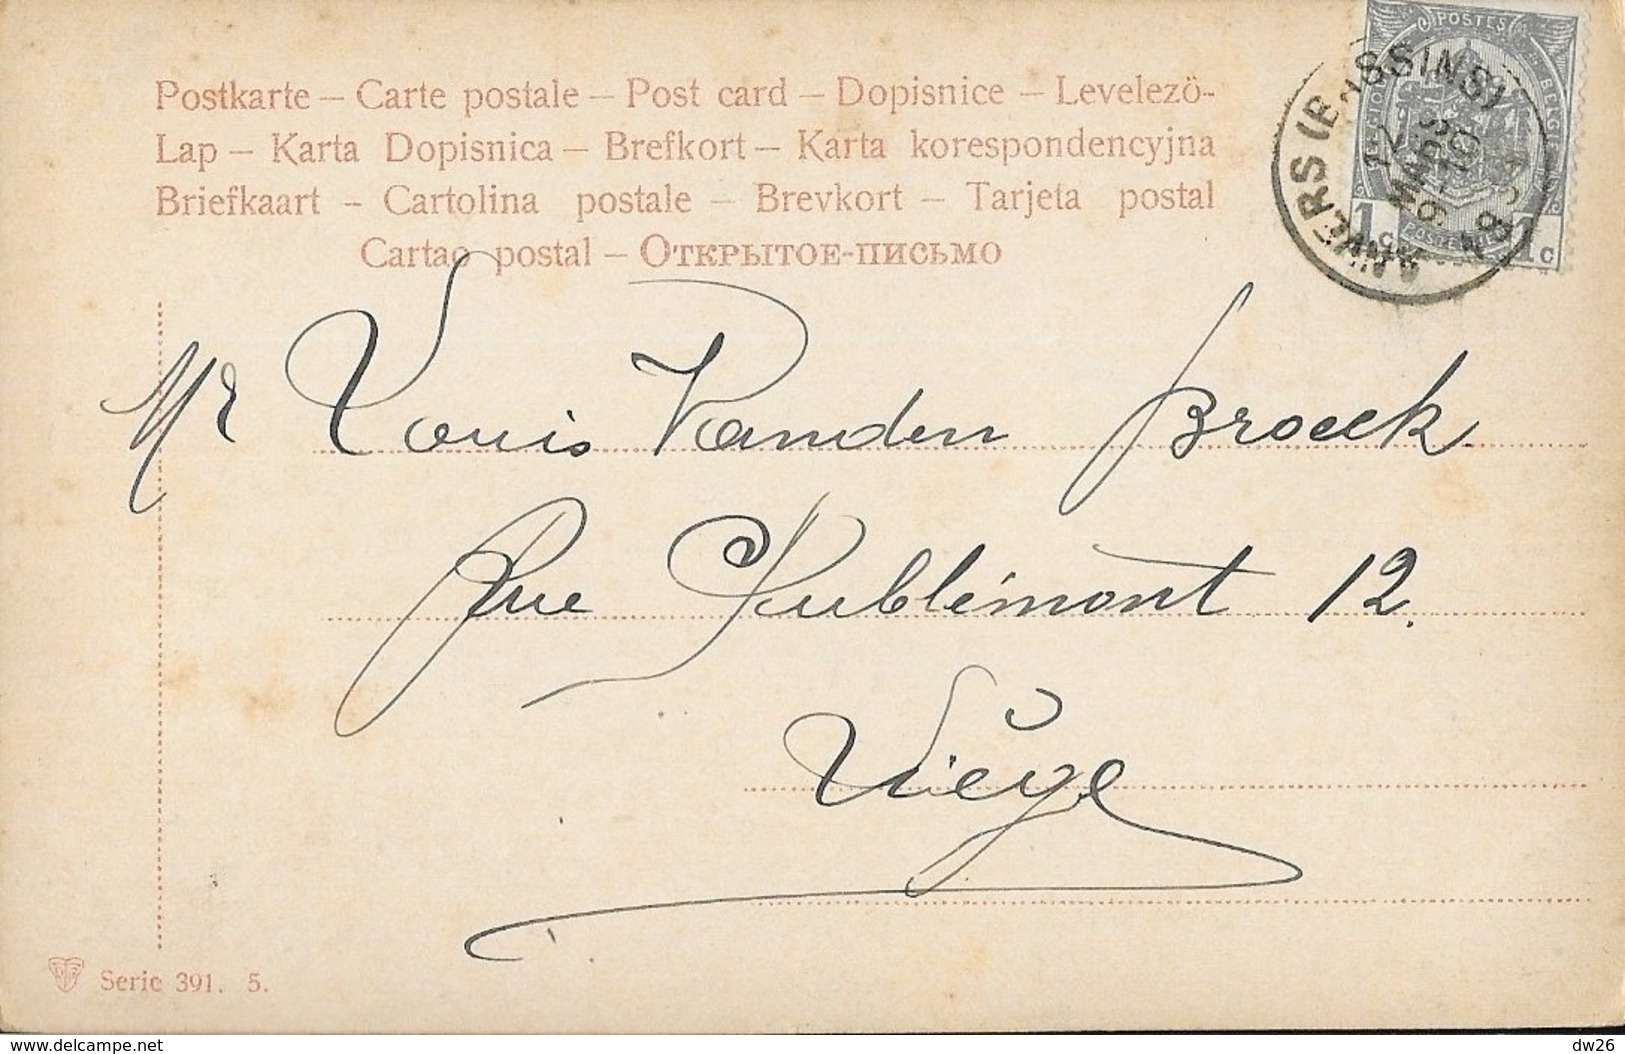 Postkarte – Carte postale – Post card – Dopisnice – Levelezö-
Lap – Karta Dopisnica – Brefkort – Karta korespondencyjna
Briefkaart – Cartolina postale – Brevkort – Tarjeta postal
Cartao postal – Открытое-письмо
POSTES
1 c 1 c
ANVERS (BASSINS)
12
MARS
Mr Louis Vanden Broeck
Rue Publémont 12.
Liège
Serie 391. 5.
www.delcampe.net
dw26